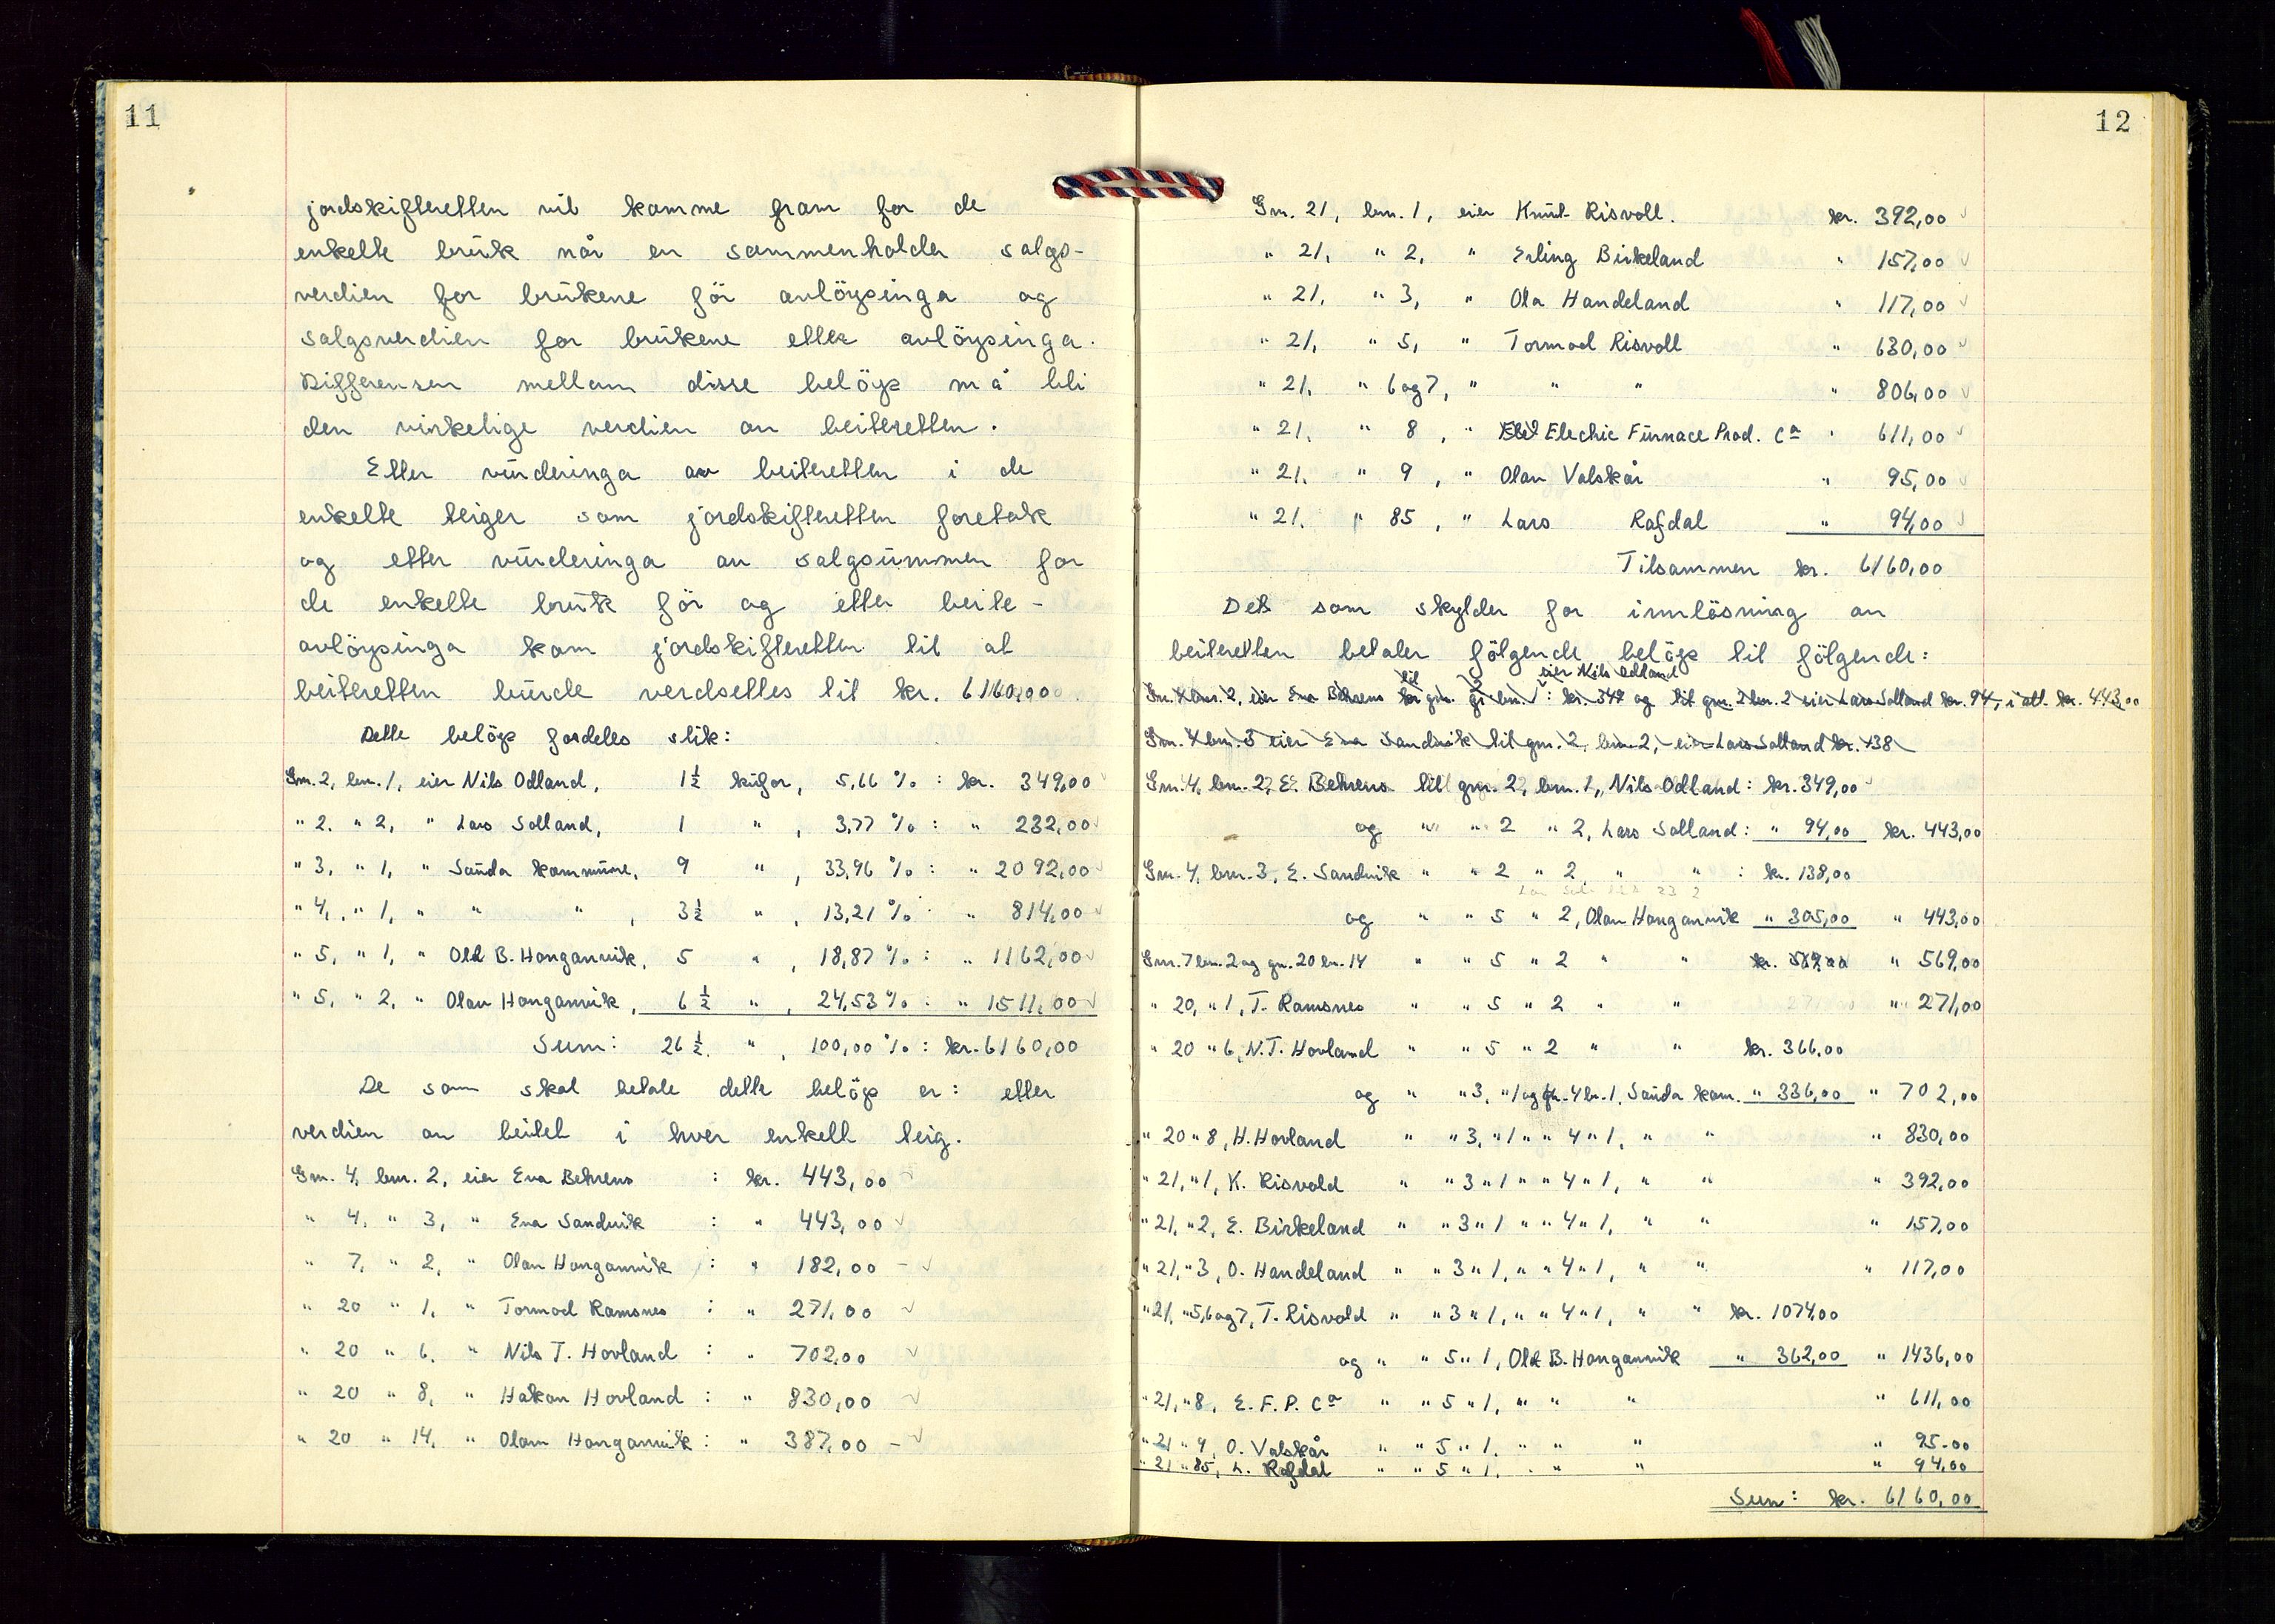 11
jordskifteretten vil komme fram for de
enkelte brük når en sammenholder salgs-
verdien for brükene för avlöysinga og
salgsverdien for brükene etter avlöysinga.
Differensen mellom disse belöp må bli
den virkelige verdien av beiteretten.
Etter vürderinga av beiteretten i de
enkelte teiger som jordskifteretten foretok
og etter vürderinga av salgsümmen for
de enkelte brük för og etter beite-
avlöysinga kom jordskifteretten til at
beiteretten bürde verdsettes til kr. 6160,00.
Dette belöp fordeles slik:
Gnr. 2, bnr. 1, eier Nils Odland, 1½ küfor, 5,66 % : kr. 349,00
" 2. " 2, " Lars Solland, 1 " , 3,77 % : " 232,00
" 3, " 1, " Saüda kommüne, 9 " , 33,96 % : " 2092,00
" 4, " 1, " " " , 3½ " , 13,21 % : " 814,00
" 5, " 1, " Olel B. Honganvik, 5 " , 18,87 % : " 1162,00
" 5, " 2, " Olav Honganvik, 6½ " , 24,53 % : " 1511,00
Sum: 26½ " , 100,00 % : kr. 6160,00
De som skal betale dette belöp er: etter
verdien av beitet i hver enkelt teig.
Gnr. 4, bnr. 2, eier Eva Behrens : kr. 443,00
" 4, " 3, " Eva Sandvik : " 443,00
" 7, " 2, " Olav Honganvik : " 182,00 -
" 20 " 1, " Tormod Ramsnes : " 271,00
" 20 " 6, " Nils T. Hovland : " 702,00
" 20 " 8, " Hakon Hovland : " 830,00
" 20 " 14, " Olav Honganvik : " 387,00 -
12
Gnr. 21, bnr. 1, eier Knüt Risvoll. kr. 392,00
" 21, " 2, " Erling Birkeland " 157,00
" 21, " 3, " Ola Handeland " 117,00
" 21, " 5, " Tormod Risvoll " 630,00
" 21, " 6 og 7, " " " " 806,00
" 21, " 8, " Electric Fürnace Prod. Cº " 611,00
" 21, " 9, " Olav Valskår " 95,00
" 21, " 85, " Lars Rafdal " 94,00
Tilsammen kr. 6160,00
Det som skylder for innlösning av
beiteretten betaler fölgende belöp til fölgende:
eier Nils Odland
Gnr. 4 bnr. 2, eier Eva Behrens til gnr. 2 bnr. 1 : kr. 349 og til gnr. 2 bnr. 2 eier Lars Solland kr. 94, i alt kr. 443,00
Gnr. 4 bnr. 3 eier Eva Sandvik til gnr. 2, bnr. 2, eier Lars Solland kr. 138
Gnr. 4, bnr. 2, E. Behrens til gnr. 2, bnr. 1, Nils Odland : kr. 349,00
og " " 2 " 2, Lars Solland : " 94,00 kr. 443,00
Gnr. 4, bnr. 3, E. Sandvik " " 2 " 2 " " : kr. 138,00
og " " 5 " 2, Olav Honganvik " 305,00 " 443,00
Gnr. 7 bnr. 2 og gnr. 20 bnr. 14 " " 5 " 2 " " kr. 569,00 " 569,00
" 20, " 1, T. Ramsnes " " 5 " 2 " " " 271,00
" 20 " 6, N.T. Hovland " " 5 " 2 " " kr. 366,00
og " " 3, " 1 og gnr. 4 bnr. 1, Saüda kom. " 336,00 " 702,00
" 20 " 8, H. Hovland " " 3, " 1 " " 4 " 1, " " " 830,00
" 21, " 1, K. Risvold " " 3 " 1 " " 4 " 1, " " " 392,00
" 21, " 2, E. Birkeland " " 3 " 1 " " 4 " 1, " " " 157,00
" 21, " 3, O. Handeland " " 3 " 1, " " 4 " 1, " " " 117,00
" 21, " 5, 6 og 7, T. Risvold " " 3 " 1, " " 4 " 1, " " kr. 1074,00
og " " 5 " 1, Olel B. Honganvik " 362,00 " 1436,00
" 21, " 8, E. F. P. Cº " " 5 " 1, " " " " 611,00
" 21 " 9, O. Valskår " " 5 " 1, " " " " 95,00
" 21 " 85, L. Rafdal " " 5 " 1, " " " " 94,00
Sum: kr. 6160,00